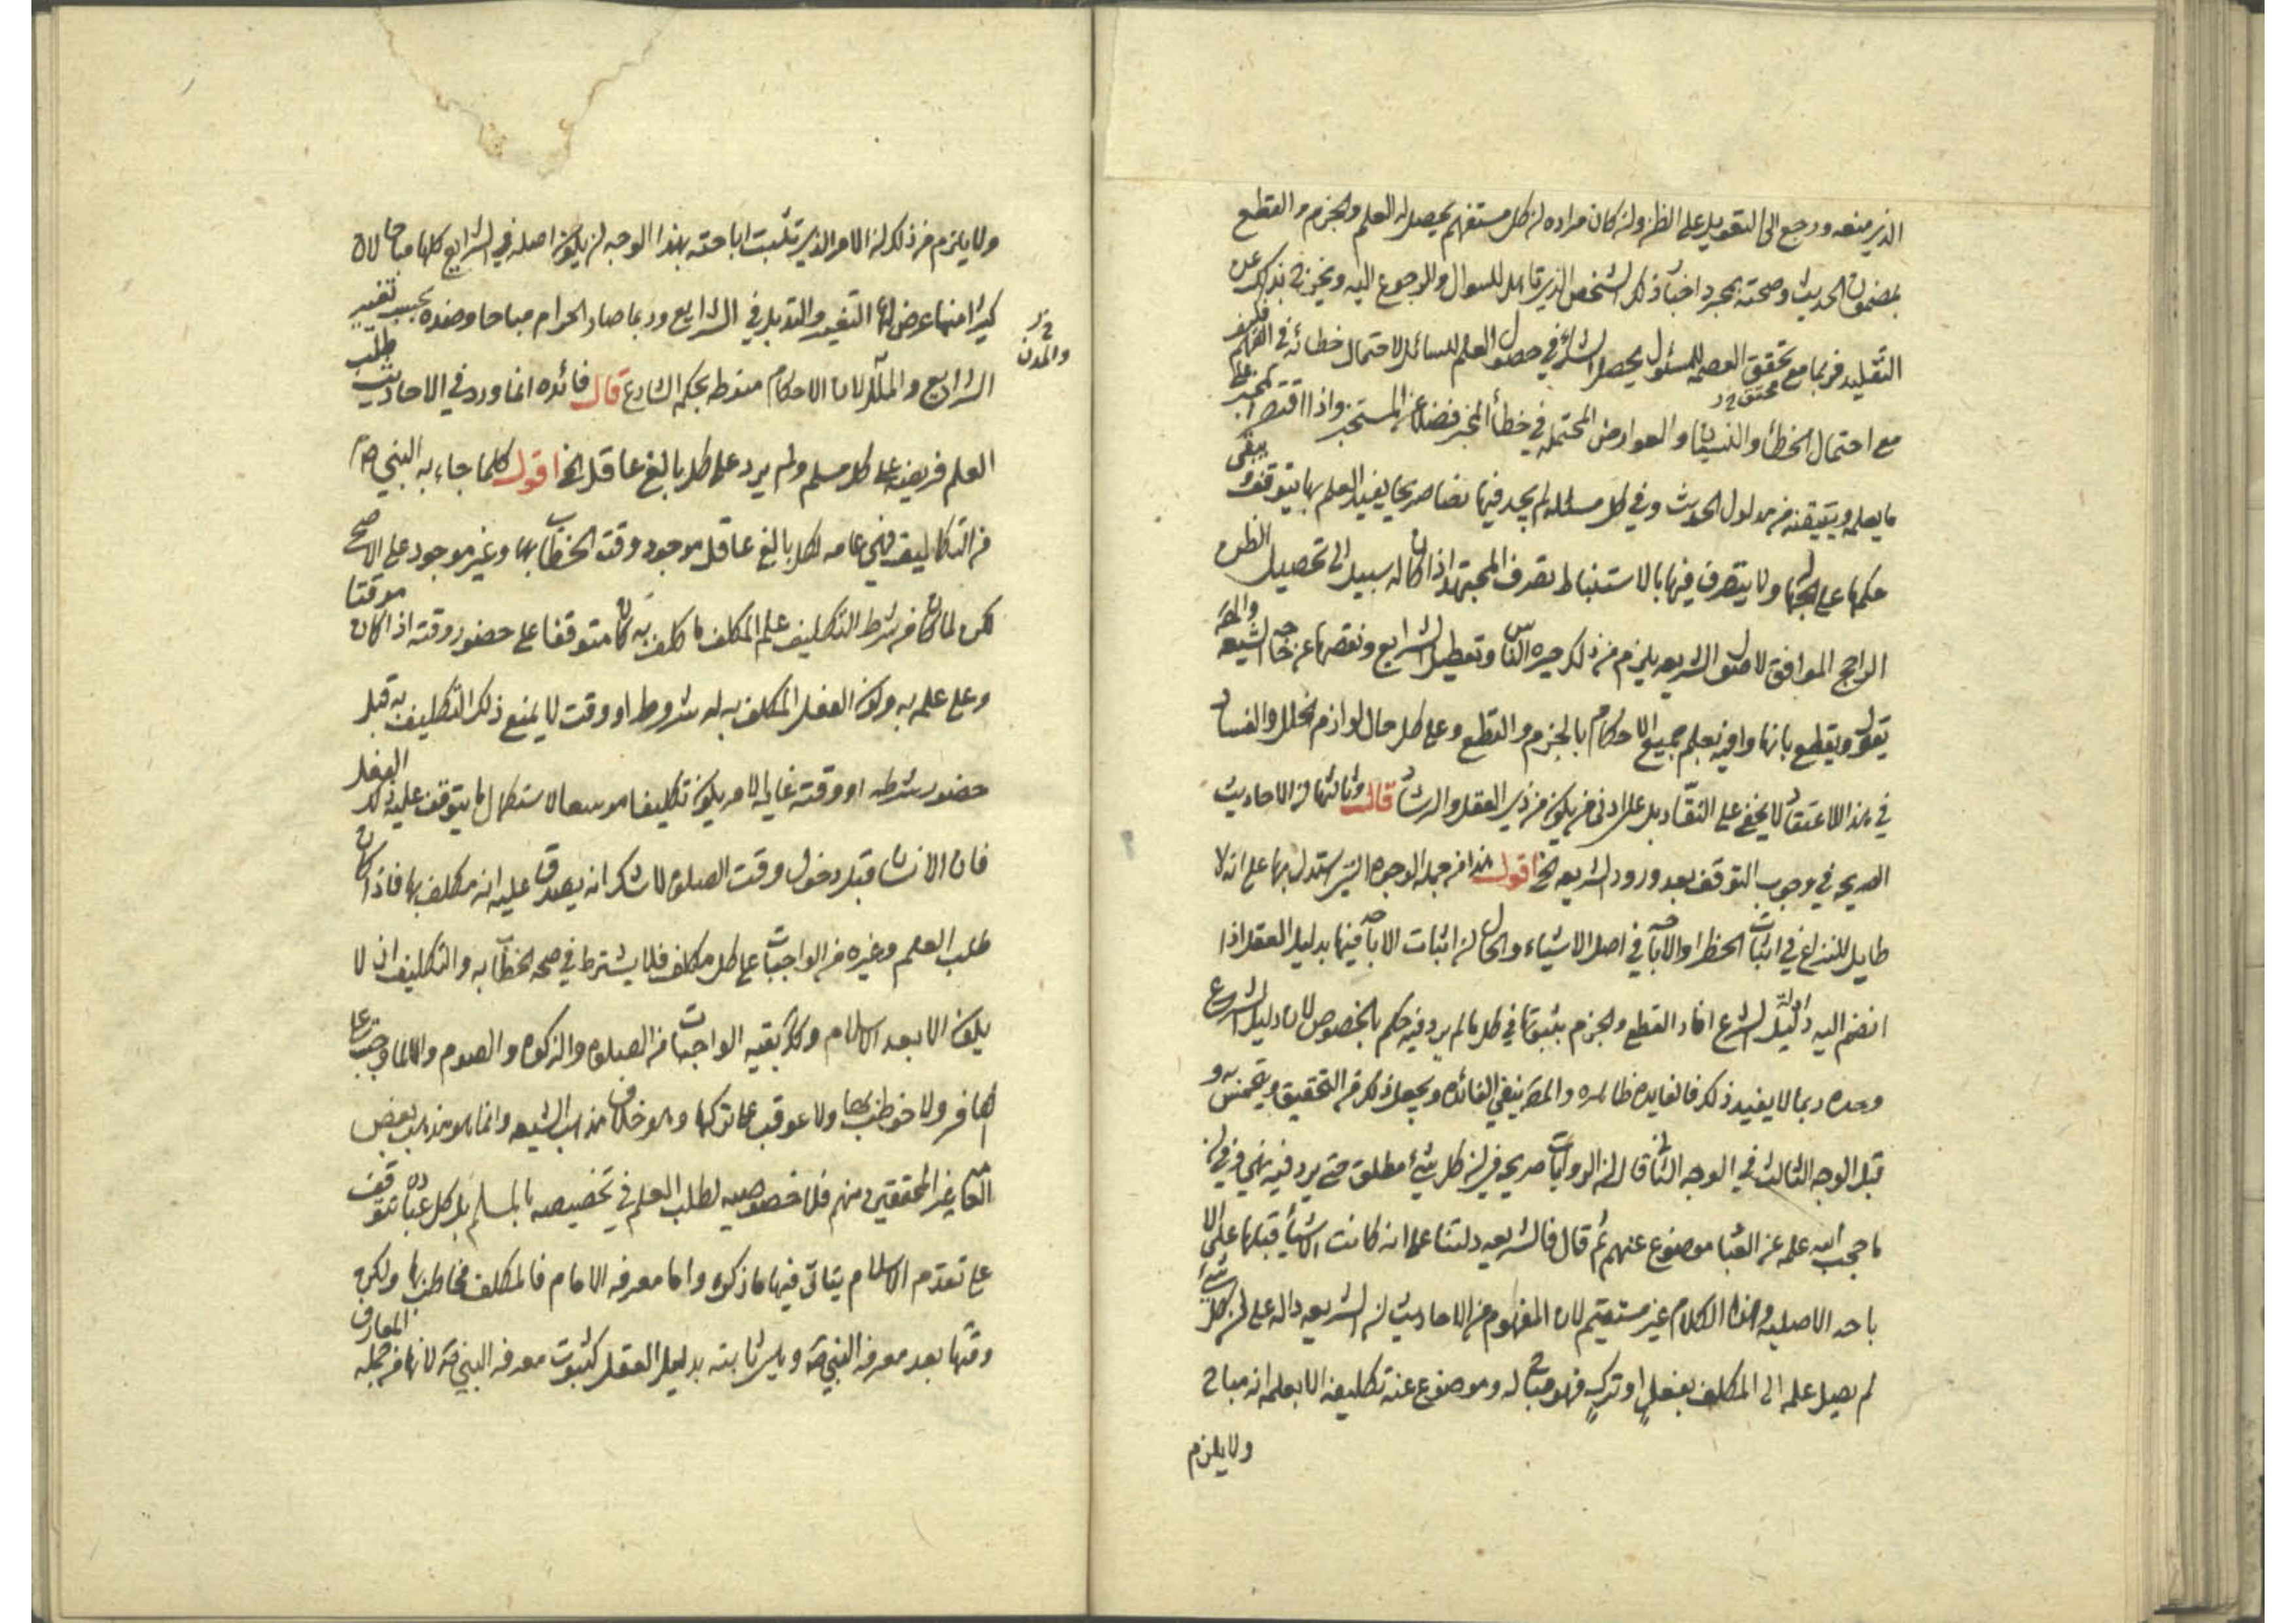 الذي منعه ورجع الى التعويل على الظن وان كان مراده ان كل مستفهم يحصل له العلم والجزم والقطع
بمضمون الحديث وصحته بمجرد اخبار ذلك الشخص الذي قابل للسوال والرجوع اليه ويخرج بذلك عن
التقليد فربما مع تحقق العصمة للمسئول يحصل الشك في حصول العلم للسائل لاحتمال خطائه في الفهم فكيف
مع احتمال الخطأ والنسيان والعوارض المحتملة في خطأ المخبر فضلا عن المستخبر واذا اقتصر المخبر على
ما يعلمه ويتيقنه من مدلول الحديث وفي كل مسئلة لم يجد فيها نصا صريحا يفيد العلم بها يتوقف ويبقى
حكمها على الجهل ولا يتصرف فيها بالاستنباط تصرف المجتهد اذا كان له سبيل الى تحصيل الظن
الراجح الموافق لاصول الشريعة يلزم من ذلك حيرة الناس وتعطيل الشرايع ونقصها عن حاجة الشيعة والمص
يقول ويقطع بانها وافية بعلم جميع الاحكام بالجزم والقطع وعلى كل حال لوازم الخلل والفساد
في هذا الاعتقاد لا يخفى على النقاد بل على ادنى من يكون من ذوي العقل والرشاد قال وثالثها من الاحاديث
الصريحة في وجوب التوقف بعد ورود الشريعة الخ اقول هذا من جملة الوجوه التي استدل بها على انه لا
طايل للنزاع في اثبات الحظر او الاباحة في اصل الاشياء والحال ان اثبات الاباحة فيها بدليل العقل اذا
انضم اليه دليل الشرع افاد القطع والجزم بثبوتها في كل ما لم يرد فيه حكم بالخصوص لان دليل الشرع
وحده ربما لا يفيد ذلك فالفايدة ظاهرة والمص ينفي الفائدة ويجعل ذلك من التحقيق ويتحمس به و
قبل الوجه الثالث في الوجه الثاني قال ان الروايات صريحة في ان كل شيء مطلق حتى يرد فيه نهي وفي ان
ما حجب الله علمه عن العباد موضوع عنهم ثم قال فالشريعة دلتنا على انه كانت الاشياء قبلها على الا
باحة الاصلية وهذا الكلام غير مستقيم لان المفهوم من الاحاديث ان الشريعة دالة على ان كل شيء
لم يصل علمه الى المكلف بفعل او ترك فهو مباح له وموضوع عنه تكليفه الا بعلمه انه مباح
ولا يلزم
ولا يلزم من ذلك ان الامر الذي تثبت اباحته بهذا الوجه ان يكون اصله في الشرايع كلها مباحا لان
كثيرا منها عرض لها التغير والتبديل في الشرايع وربما صار الحرام مباحا وضده بحسب تغيير
الشرايع والملل لان الاحكام منوطة بحكم الشارع قال فائدة انما ورد في الاحاديث طلب
العلم فريضة على كل مسلم ولم يرد على كل بالغ عاقل الخ اقول كلما جاء به النبي ص
من التكاليف فهي عامة لكل بالغ عاقل موجود وقت الخطاب بها وغير موجود على الاصح
لكن لما كان من شرط التكليف علم المكلف بما كلف به كان متوقفا على حضور وقته اذا كان موقتا
وعلى علمه به وكون الفعل المكلف به له شروط او وقت لا يمنع ذلك التكليف به قبل
حضور شرطه او وقته غاية الامر يكون تكليفا موسعا لاستكمال ما يتوقف عليه ذلك الفعل
فان الانسان قبل دخول وقت الصلوة لا شك انه يصدق عليه انه مكلف بها فاذا كان
طلب العلم وغيره من الواجبات على كل مكلف فلا يشترط في صحة الخطاب به والتكليف ان لا
يكون الا بعد الاسلام وكذا بقية الواجبات من الصلوة والزكوة والصوم والا لما وجبت على
الكافر ولا خوطب بها ولا عوقب على تركها وهو خلاف مذهب الشيعة وانما هو مذهب بعض
العامة غير المحققين منهم فلا خصوصية لطلب العلم في تخصيصه بالمسلم بل كل عبادة تتوقف
على تقدم الاسلام يتاتى فيها ما ذكره واما معرفة الامام فالمكلف مخاطب بها ولكن
وقتها بعد معرفة النبي ص وليس ثابتة بدليل العقل كثبوت معرفة النبي ص لانها من جملة المعارف